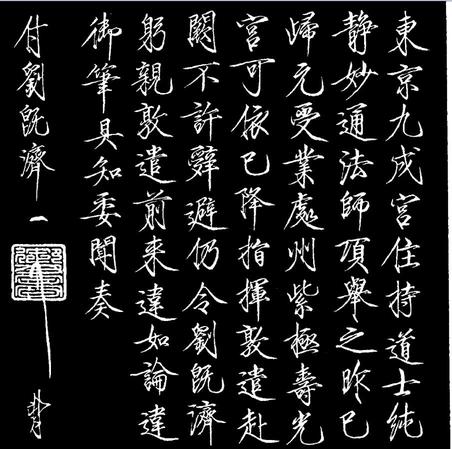 東京九成宮住持道士純
靜妙通法師項舉之昨已
歸元受業處州紫極壽光
宮可依已降指揮敦遣赴
闕不許辭避仍令劉既濟
躬親敦遣前来違如論違
御筆具知委聞奏
付劉既濟